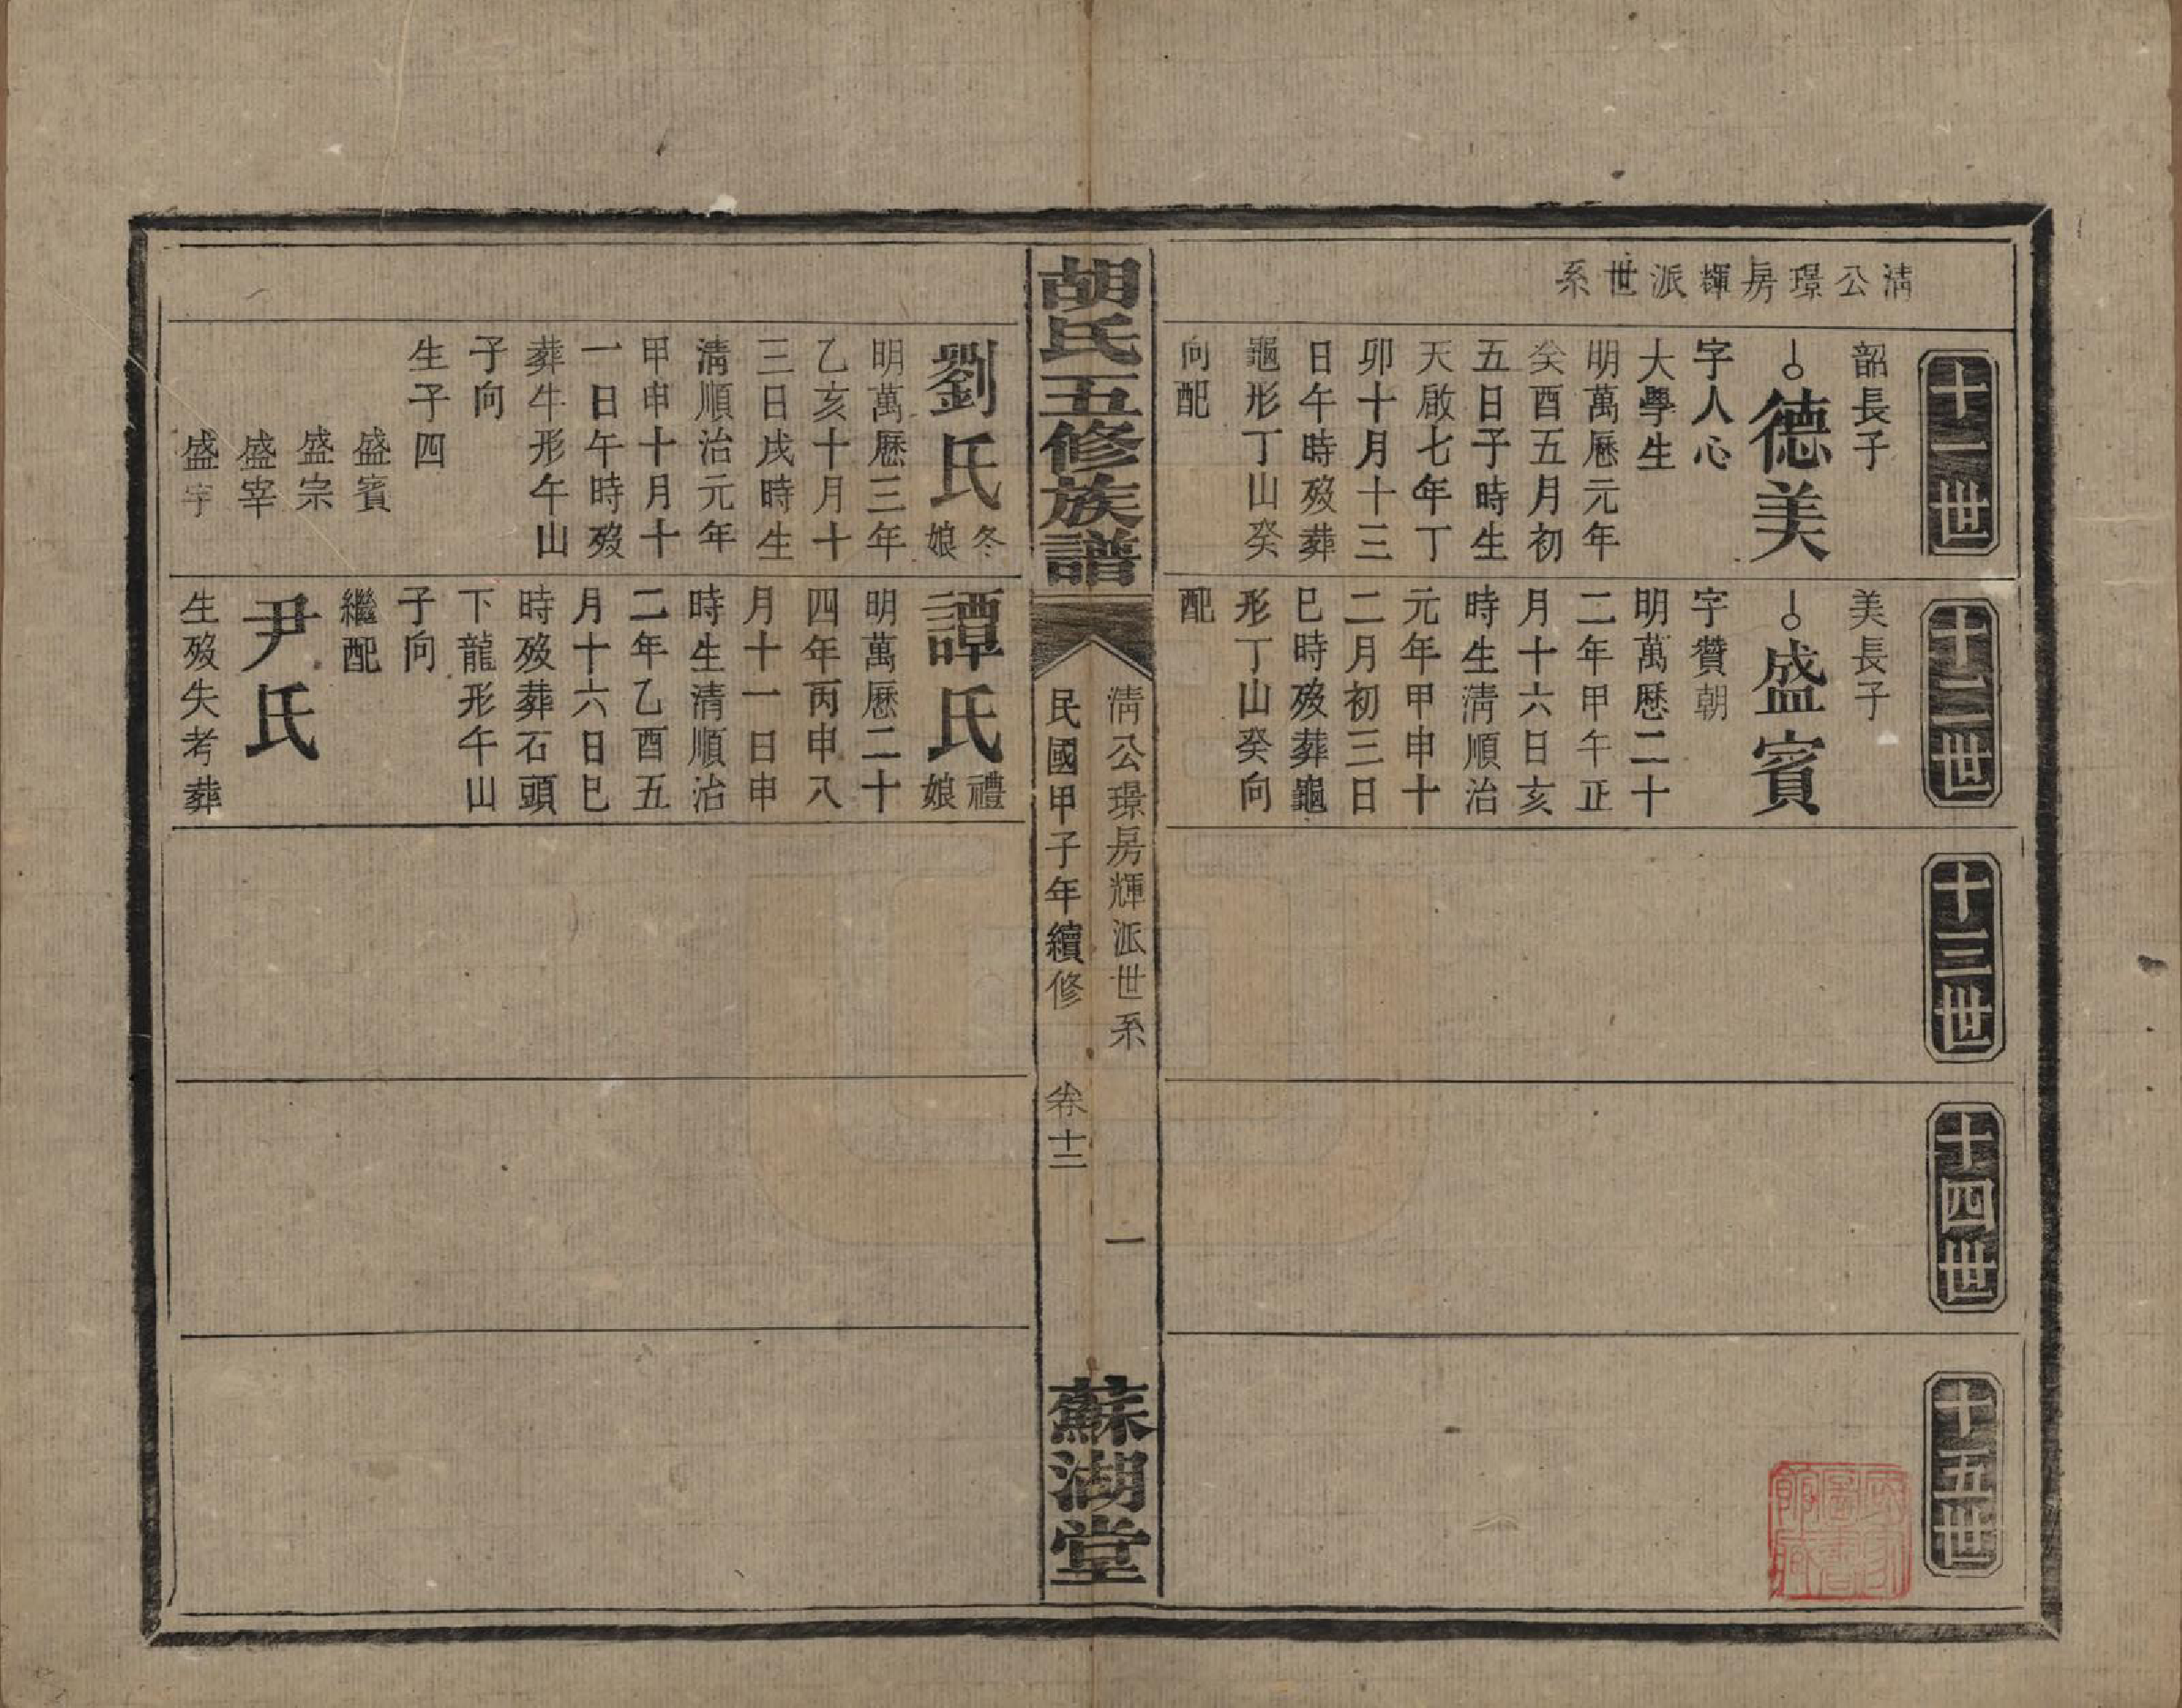 清公璟房輝派世系
十一世
韶長子
德美
字人心
大學生
明萬厯元年
癸酉五月初
五日子時生
天啟七年丁
卯十月十三
日午時歿葬
龜形丁山癸
向配
十二世
美長子
盛賓
字贊朝
明萬厯二十
二年甲午正
月十六日亥
時生清順治
元年甲申十
二月初三日
巳時歿葬龜
形丁山癸向
配
十三世
十四世
十五世
胡氏五修族譜
清公璟房輝派世系
一
民國甲子年續修
卷十二
蘇湖堂
劉氏冬娘
明萬厯三年
乙亥十月十
三日戌時生
清順治元年
甲申十月十
一日午時歿
葬牛形午山
子向
生子四
盛賓
盛宗
盛宰
盛宇
譚氏禮娘
明萬厯二十
四年丙申八
月十一日申
時生清順治
二年乙酉五
月十六日巳
時歿葬石頭
下龍形午山
子向
繼配
尹氏
生歿失考葬